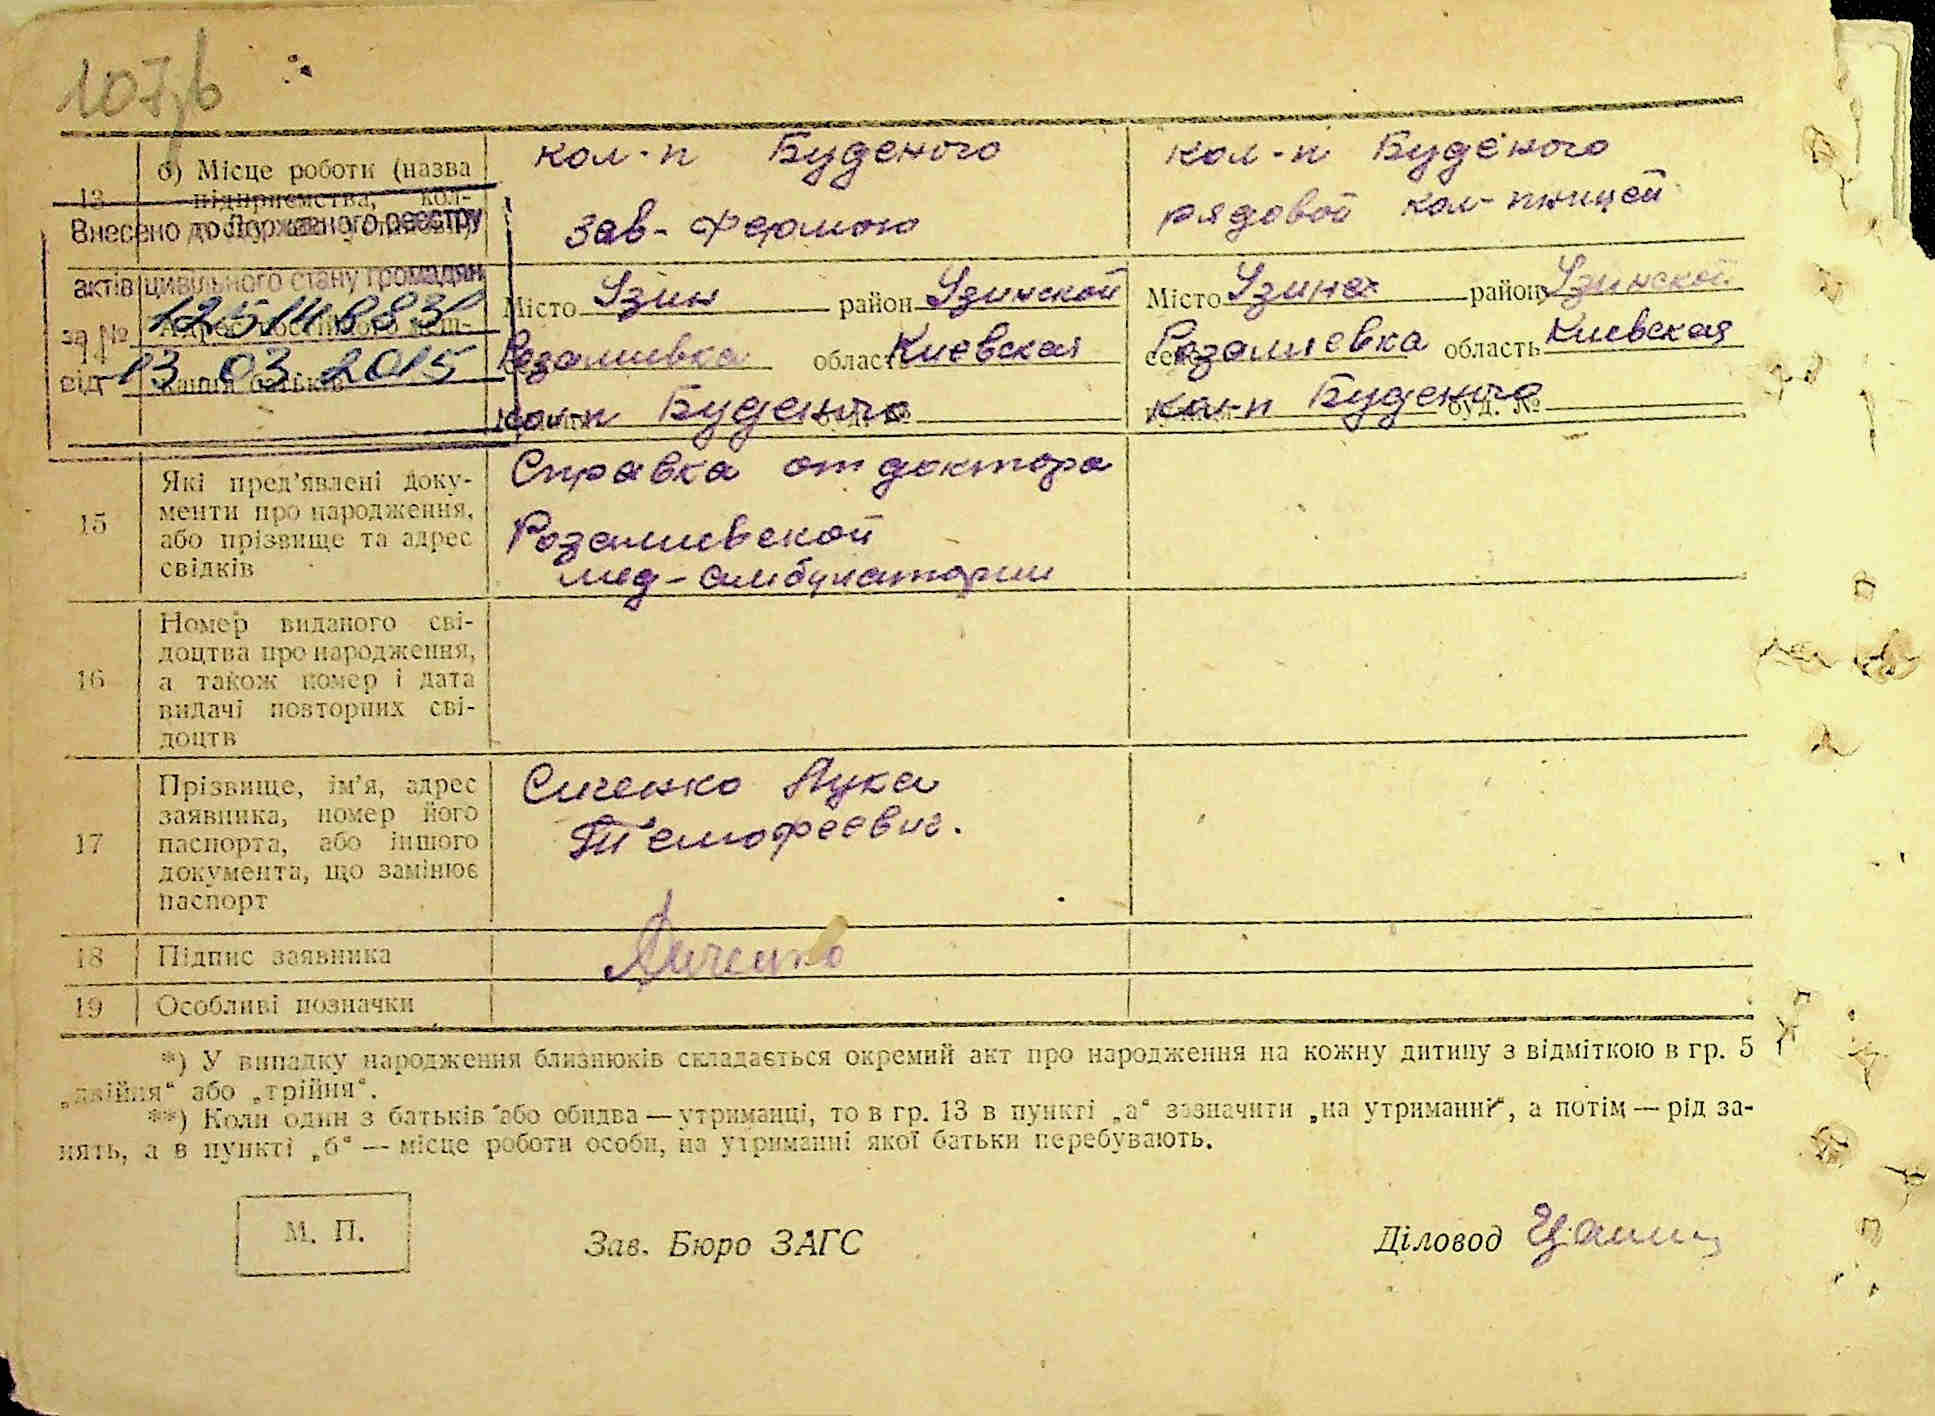 107
б) Місце роботи (назва
13 підприємства, кол-
кол-п Буденого
зав- фермою
кол-п Буденого
рядовой кол-пницей
Внесено до Державного реєстру
актів цивільного стану громадян
за №
від 13 03 2015
Місто Узин район Узинской
Розалиевка область Киевская
кол-п Буденого
Місто Узин район Узинской
село Розалиевка область Киевская
кол-п Буденого буд. №
15
Які пред'явлені доку-
менти про народження,
або прізвище та адрес
свідків
Справка от доктора
Розалиевской
мед-амбулатории
16
Номер виданого сві-
доцтва про народження,
а також номер і дата
видачі повторних сві-
доцтв
17
Прізвище, ім'я, адрес
заявника, номер його
паспорта, або іншого
документа, що замінює
паспорт
Сиченко Лука
Темофеевич.
18 Підпис заявника
19 Особливі позначки
*) У випадку народження близнюків складається окремий акт про народження на кожну дитину з відміткою в гр. 5
„двійня“ або „трійня“.
**) Коли один з батьків або обидва — утриманці, то в гр. 13 в пункті „а“ зазначити „на утриманні“, а потім — рід за-
нять, а в пункті „б“ — місце роботи особи, на утриманні якої батьки перебувають.
М. П.
Зав. Бюро ЗАГС
Діловод